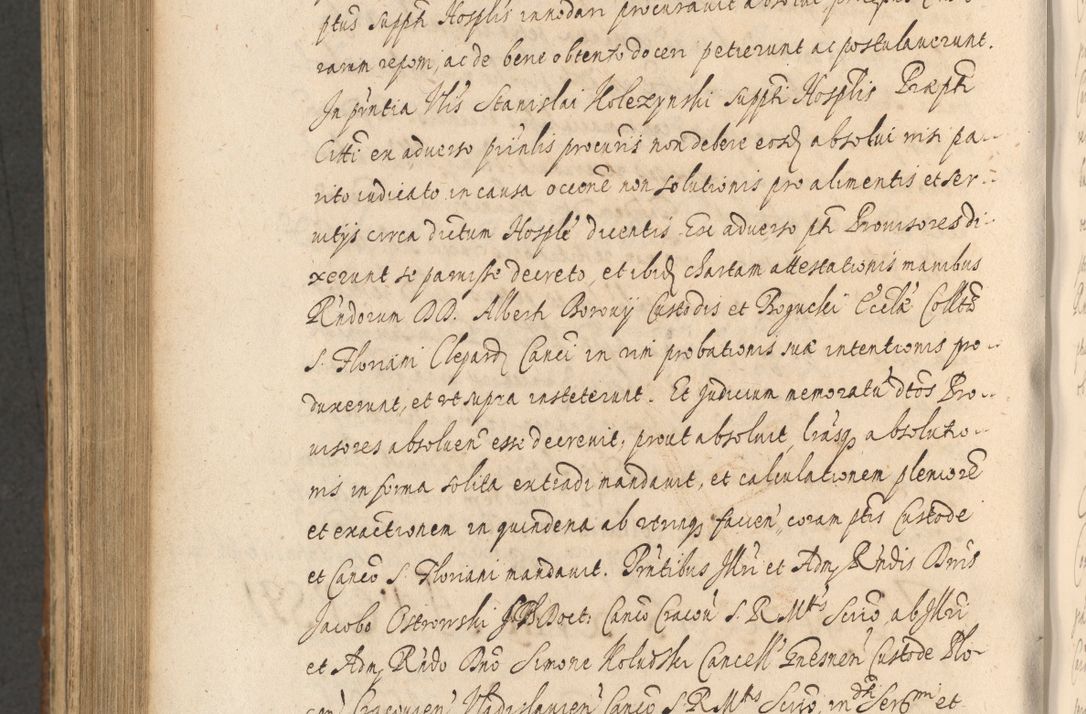 ptus Supph Hosplis innodari procuravit absolui
rarum reponi, ac de bene obtento doceri petierunt ac postulaverunt.
In pñtia Nlis Stanislai Kolezynski Suppti Hosplis Præpti
Citti ex adverso prinlis procuris non debere eosd absolui nisi pa-
rito iudicato in causa occone non solutionis pro alimentis et ser-
vitijs circa dictum Hosple dicentis. Ex adverso pti Provisores di-
xerunt se paruisse decreto, et ibid chartam attestationis manibus
Rndorum DD. Alberti Borowy Custodis et Bogucki Eccle Collte
S. Floriani Clepard Canci in vim probationis suæ intentionis pro-
duxerunt, et ut supra institerunt. Et Judicium memoratu dtos Pro-
visores absoluen esse decrevit, prout absoluit, lrasq absolutio-
nis in forma solita extradi mandavit, et calculationem pleniore
et exactionem in quindena ab utrinq facien coram ptis Custode
et Canco S. Floriani mandavit. Pntibus Illri et Adm Rndis Dnis
Jacobo Ostrowski Doct. Canco Cracov S. R. Mttis Scrio ab Illri
et Adm Rndo Dno Simone Kołudzki Cancell Gnesnen Custode Plo-
cen Cracovien Vladislavien Canco S. R. Mttis Scrio, in et